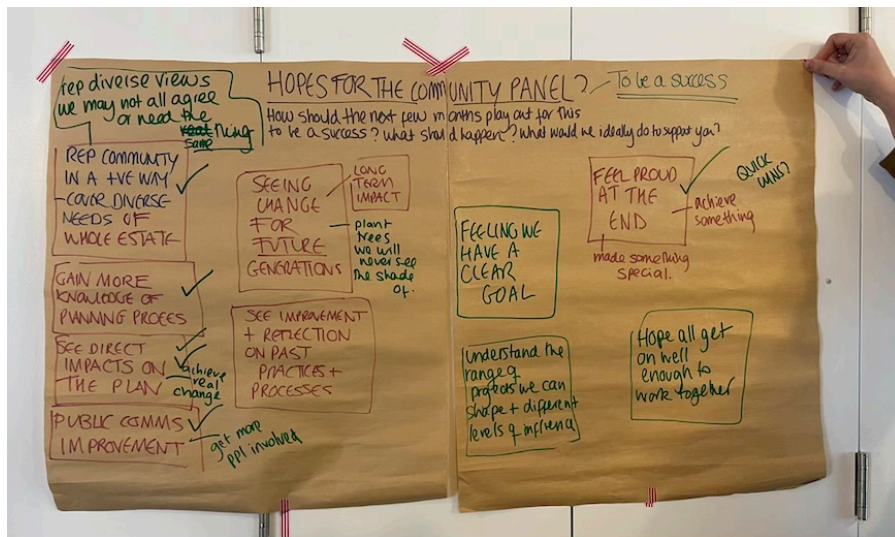 HOPES FOR THE COMMUNITY PANEL?
To be a success
How should the next few months play out for this
to be a success? What should happen? What would we ideally do to support you?
rep diverse views
we may not all agree
or need the
same thing
REP COMMUNITY
IN A +VE WAY
- COVER DIVERSE
NEEDS OF
WHOLE ESTATE
GAIN MORE
KNOWLEDGE OF
PLANNING PROCES
SEE DIRECT
IMPACTS ON
THE PLAN
achieve
real
change
PUBLIC COMMS
IMPROVEMENT
get more
ppl involved
SEEING
CHANGE
FOR
FUTURE
GENERATIONS
LONG
TERM
IMPACT
plant
trees
we will
never see
the shade
of.
SEE IMPROVEMENT
+ REFLECTION
ON PAST
PRACTICES +
PROCESSES
FEELING WE
HAVE A
CLEAR
GOAL
Understand the
range of
projects we can
shape + different
levels of influence
FEEL PROUD
AT THE
END
QUICK
WINS?
achieve
something
made something
special.
Hope all get
on well
enough to
work together